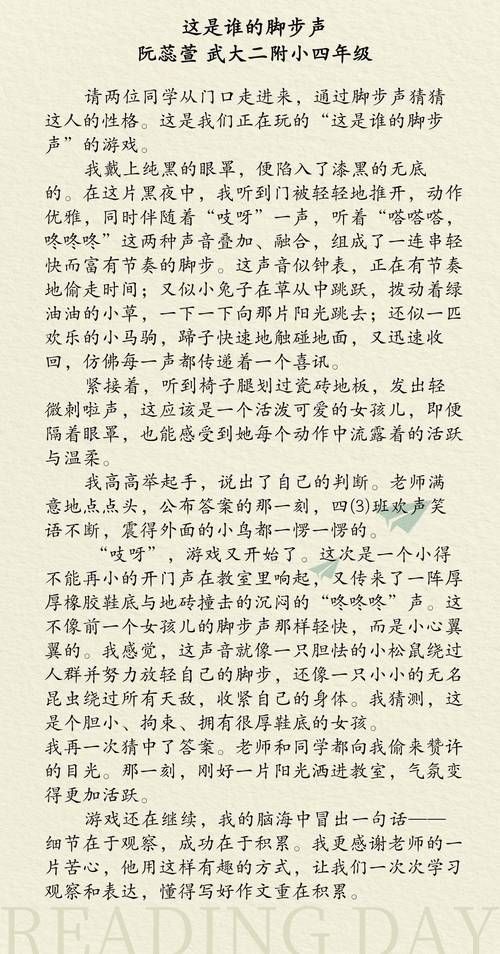 这是谁的脚步声
阮蕊萱 武大二附小四年级
请两位同学从门口走进来，通过脚步声猜猜
这人的性格。这是我们正在玩的“这是谁的脚步
声”的游戏。
我戴上纯黑的眼罩，便陷入了漆黑的无底
的。在这片黑夜中，我听到门被轻轻地推开，动作
优雅，同时伴随着“吱呀”一声，听着“嗒嗒嗒，
咚咚咚”这两种声音叠加、融合，组成了一连串轻
快而富有节奏的脚步。这声音似钟表，正在有节奏
地偷走时间；又似小兔子在草从中跳跃，拨动着绿
油油的小草，一下一下向那片阳光跳去；还似一匹
欢乐的小马驹，蹄子快速地触碰地面，又迅速收
回，仿佛每一声都传递着一个喜讯。
紧接着，听到椅子腿划过瓷砖地板，发出轻
微刺啦声，这应该是一个活泼可爱的女孩儿，即便
隔着眼罩，也能感受到她每个动作中流露着的活跃
与温柔。
我高高举起手，说出了自己的判断。老师满
意地点点头，公布答案的那一刻，四⑶班欢声笑
语不断，震得外面的小鸟都一愣一愣的。
“吱呀”，游戏又开始了。这次是一个小得
不能再小的开门声在教室里响起，又传来了一阵厚
厚橡胶鞋底与地砖撞击的沉闷的“咚咚咚”声。这
不像前一个女孩儿的脚步声那样轻快，而是小心翼
翼的。我感觉，这声音就像一只胆怯的小松鼠绕过
人群并努力放轻自己的脚步，还像一只小小的无名
昆虫绕过所有天敌，收紧自己的身体。我猜测，这
是个胆小、拘束、拥有很厚鞋底的女孩。
我再一次猜中了答案。老师和同学都向我偷来赞许
的目光。那一刻，刚好一片阳光洒进教室，气氛变
得更加活跃。
游戏还在继续，我的脑海中冒出一句话——
细节在于观察，成功在于积累。我更感谢老师的一
片苦心，他用这样有趣的方式，让我们一次次学习
观察和表达，懂得写好作文重在积累。
READING DAY